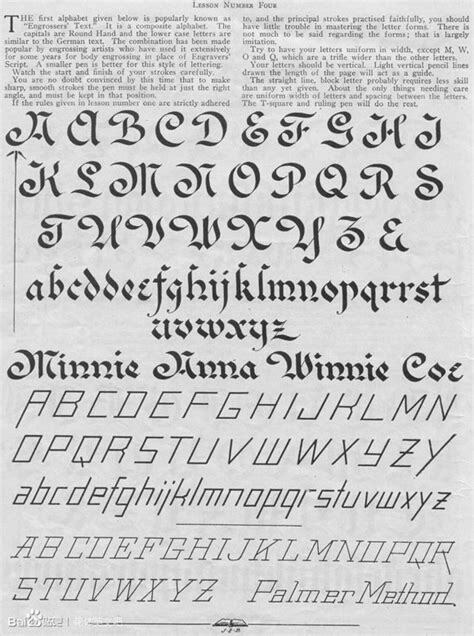 LESSON NUMBER FOUR
THE first alphabet given below is popularly known as
"Engrossers' Text." It is a composite alphabet. The
capitals are Round Hand and the lower case letters are
similar to the German text. The combination has been made
popular by engrossing artists who have used it extensively
for some years for body engrossing in place of Engravers'
Script. A smaller pen is better for this style of lettering.
Watch the start and finish of your strokes carefully.
You are no doubt convinced by this time that to make
sharp, smooth strokes the pen must be held at just the right
angle, and must be kept in that position.
If the rules given in lesson number one are strictly adhered
to, and the principal strokes practised faithfully, you should
have little trouble in mastering the letter forms. There is
not much to be said regarding the forms; that is largely
imitation.
Try to have your letters uniform in width, except M, W,
O and Q, which are a trifle wider than the other letters.
Your letters should be vertical. Light vertical pencil lines
drawn the length of the page will act as a guide.
The straight line, block letter probably requires less skill
than any yet given. About the only things needing care
are uniform width of letters and spacing between the letters.
The T-square and ruling pen will do the rest.
A B C D E F G H I
K L M N O P Q R S
T U V W X Y Z &
abcddefghijklmnopqrrst
uvwxyz
Minnie Anna Winnie Coe
ABCDEFGHIJKLMN
OPQRSTUVWXYZY
abcdefghijklmnopqrstuvwxyz
ABCDEFGHIJKLMNOPQR
STUVWXYZ Palmer Method.